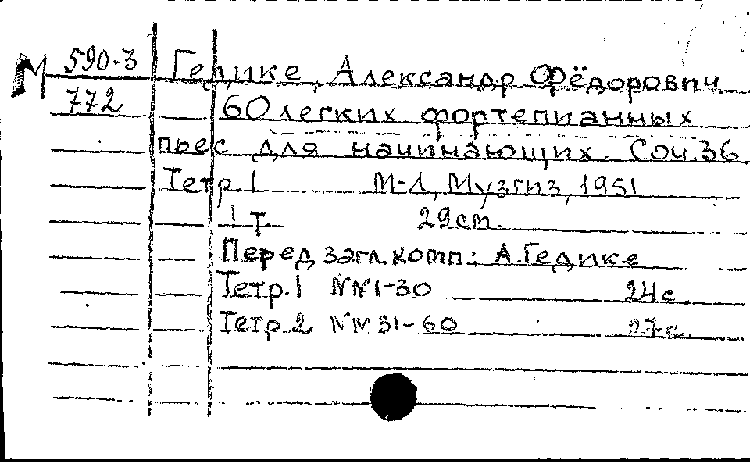 М 590-3 Гедике, Александр Фёдорович
772 60 легких фортепианных
пьес для начинающих. Соч. 36
Тетр. 1 М-Л, Музгиз, 1951
1 т. 29 cm.
Перед загл. комп.: А. Гедике
Тетр. 1 №№ 1-30 24 с.
Тетр. 2 №№ 31-60 27 с.